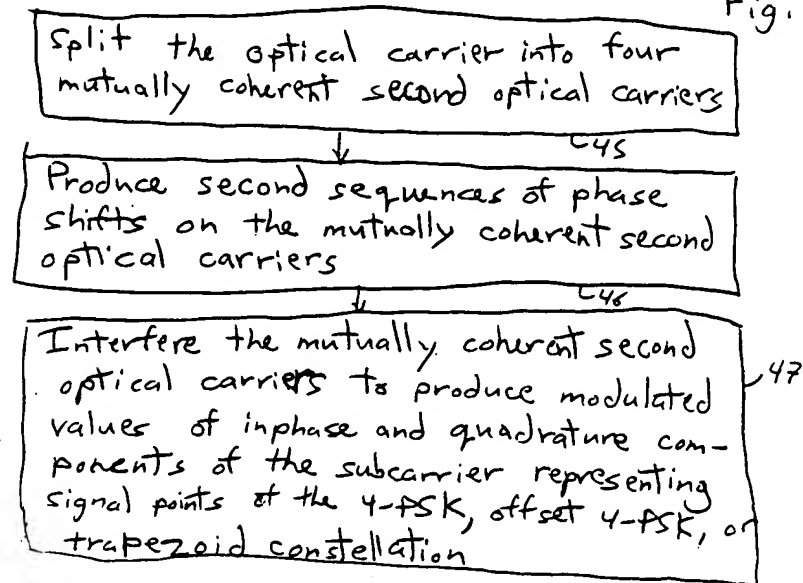 Fig.
Split the optical carrier into four
mutually coherent second optical carriers
45
Produce second sequences of phase
shifts on the mutually coherent second
optical carriers
46
Interfere the mutually coherent second
optical carriers to produce modulated
47
values of inphase and quadrature com-
ponents of the subcarrier representing
signal points of the 4-PSK, offset 4-PSK, or
trapezoid constellation